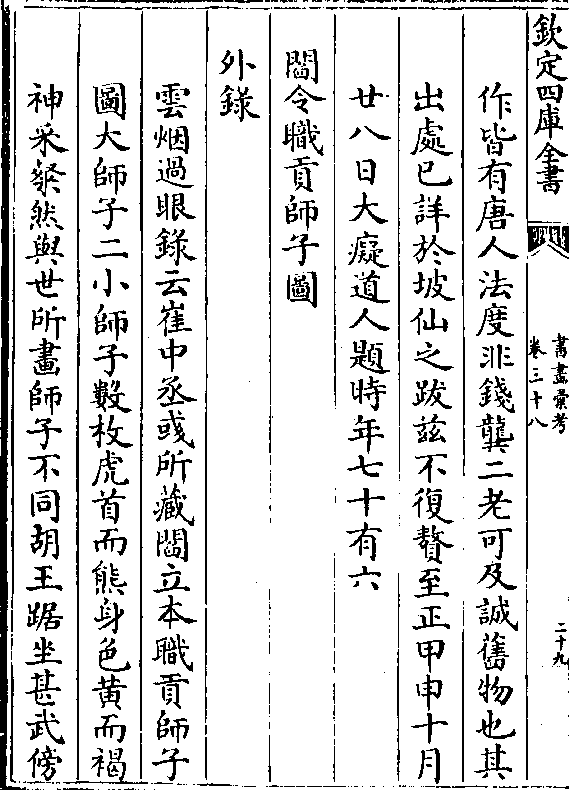 欽定四庫全書
書畫彙考
卷三十八
二十九
作皆有唐人法度非錢龔二老可及誠舊物也其
出處已詳於坡仙之跋兹不復贅至正甲申十月
廿八日大癡道人題時年七十有六
閻令職貢師子圖
外錄
雲烟過眼錄云崔中丞彧所藏閻立本職貢師子
圖大師子二小師子數枚虎首而熊身色黄而褐
神采粲然與世所畫師子不同胡王踞坐甚武傍